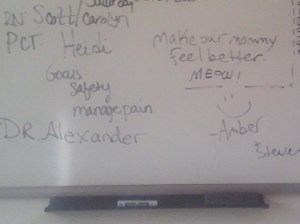 Saturday
RN Scott/Carolyn
PCT: Heidi
Goals:
Safety
manage pain
DR. Alexander
Make our mommy
feel better.
MEOW!
-Amber
& Steven